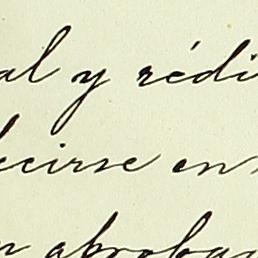 al y rédi
ecirse en
n abroba